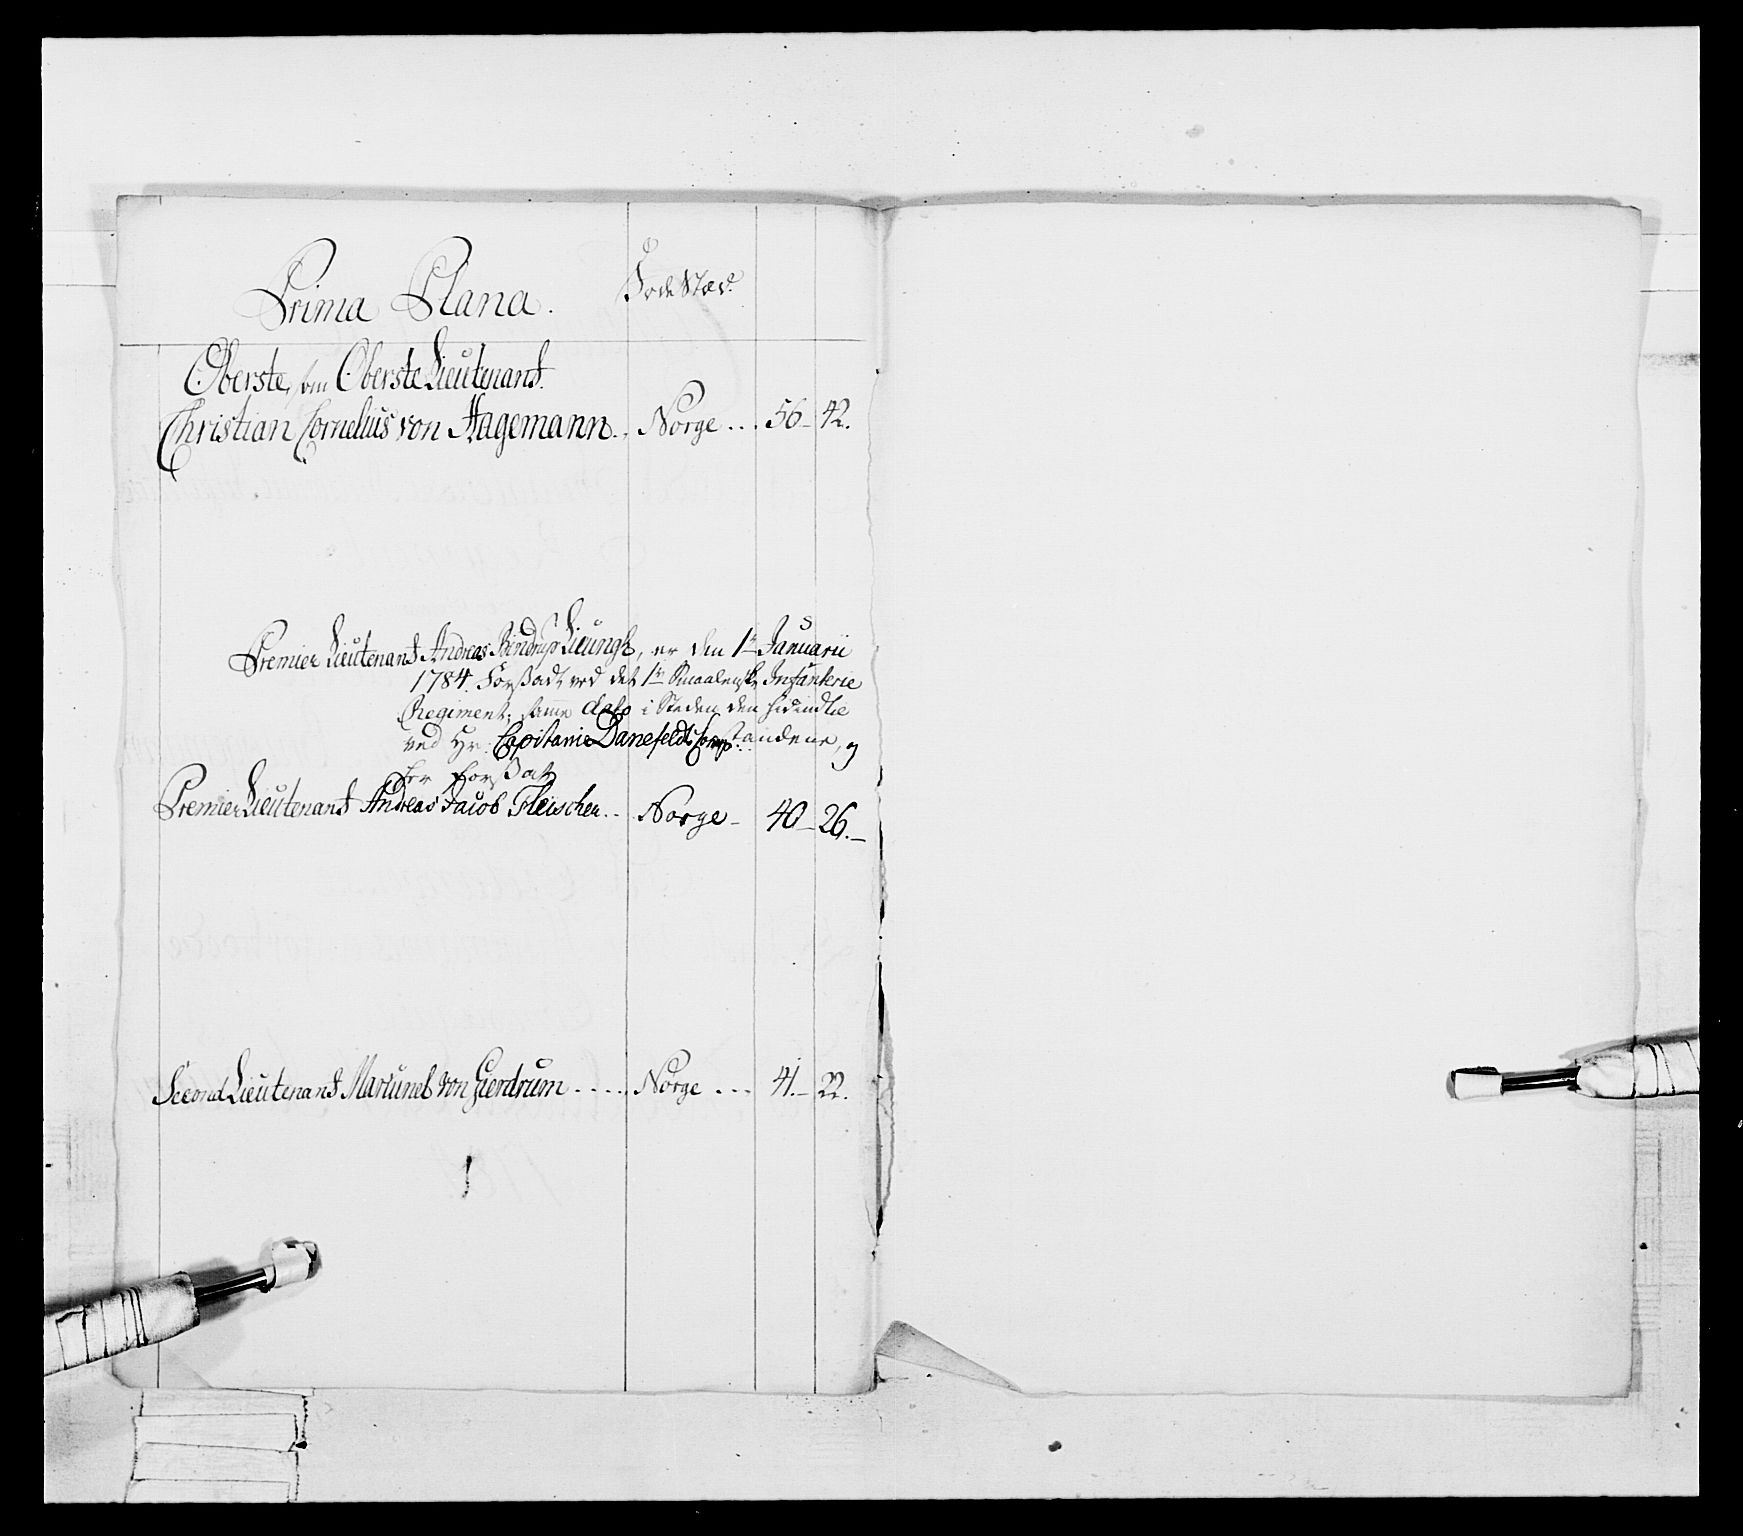 Prima Plana.
Føde Stæd.
Oberste, som Oberste Lieutenant.
Christian Cornelius von Hagemann .. Norge ... 56 - 42.
Premier Lieutenant Andreas Bindrup Lieungh, er den 1te Januarii
1784. Forsat ved det 1te Smaalenske Infanterie
Regiment; samme dato i Steden den
ved Hr: Capitaine Danefeldts Comp: standene, og
her forsat
Premier Lieutenant Andreas Jacob Fleischer .. Norge - 40 - 26. -
Second Lieutenant von Gierdrum ..... Norge ... 41. - 22.